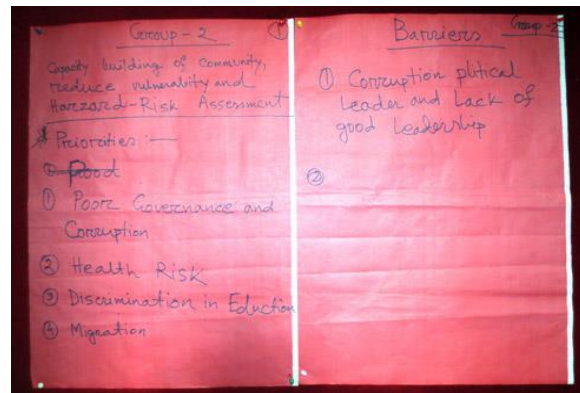 Group - 2 ①
Capacity building of community,
reduce vulnerability and
Harzard-Risk Assessment
Priorities :-
① Flood
① Poor Governance and
Corruption
② Health Risk
③ Discrimination in Eduction
④ Migration
Group-2
Barriers
① Corruption plitical
Leader and Lack of
good Leadership
②